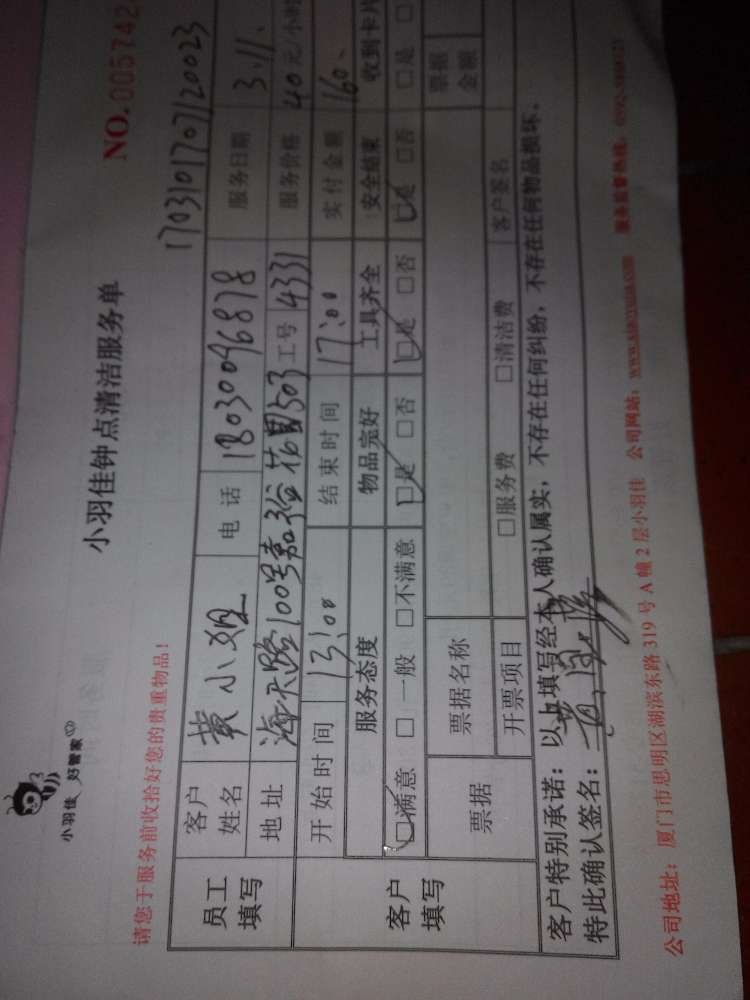 小羽佳 好管家
小羽佳钟点清洁服务单
NO.005742
请您于服务前收拾好您的贵重物品！
1703101707120023
员工填写
客户姓名 黄小姐 电话 18030096878 服务日期 3.11.
地址 海天路100号嘉裕花园503 工号 4331 服务价格 40元/小时
客户填写
开始时间 13:00 结束时间 17:00 实付金额 160、
服务态度 物品完好 工具齐全 安全结束 收到卡片
□满意 □一般 □不满意 □是 □否 □是 □否 □是 □否 □是
票据 票据名称 票据金额
开票项目 □服务费 □清洁费 客户签名
客户特别承诺：以上填写经本人确认属实，不存在任何纠纷，不存在任何物品损坏．
特此确认签名：
公司地址：厦门市思明区湖滨东路 319 号 A 幢 2 层小羽佳 公司网站： 服务监督热线：